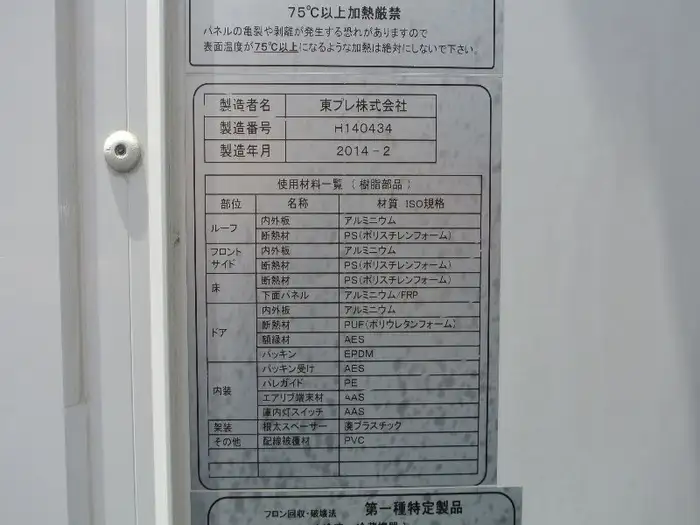 75℃以上加熱厳禁
パネルの亀裂や剥離が発生する恐れがありますので
表面温度が75℃以上になるような加熱は絶対にしないで下さい。
製造者名 東プレ株式会社
製造番号 H140434
製造年月 2014-2
使用材料一覧（樹脂部品）
部位 名称 材質 ISO規格
ルーフ 内外板 アルミニウム
断熱材 PS(ポリスチレンフォーム)
フロント サイド 内外板 アルミニウム
断熱材 PS(ポリスチレンフォーム)
床 断熱材 PS(ポリスチレンフォーム)
下面パネル アルミニウム/FRP
ドア 内外板 アルミニウム
断熱材 PUF(ポリウレタンフォーム)
額縁材 AES
パッキン EPDM
内装 パッキン受け AES
バレガイド PE
エアリブ端末材 AAS
庫内灯スイッチ AAS
架装 根太スペーサー 廃プラスチック
その他 配線被覆材 PVC
フロン回収・破壊法 第一種特定製品